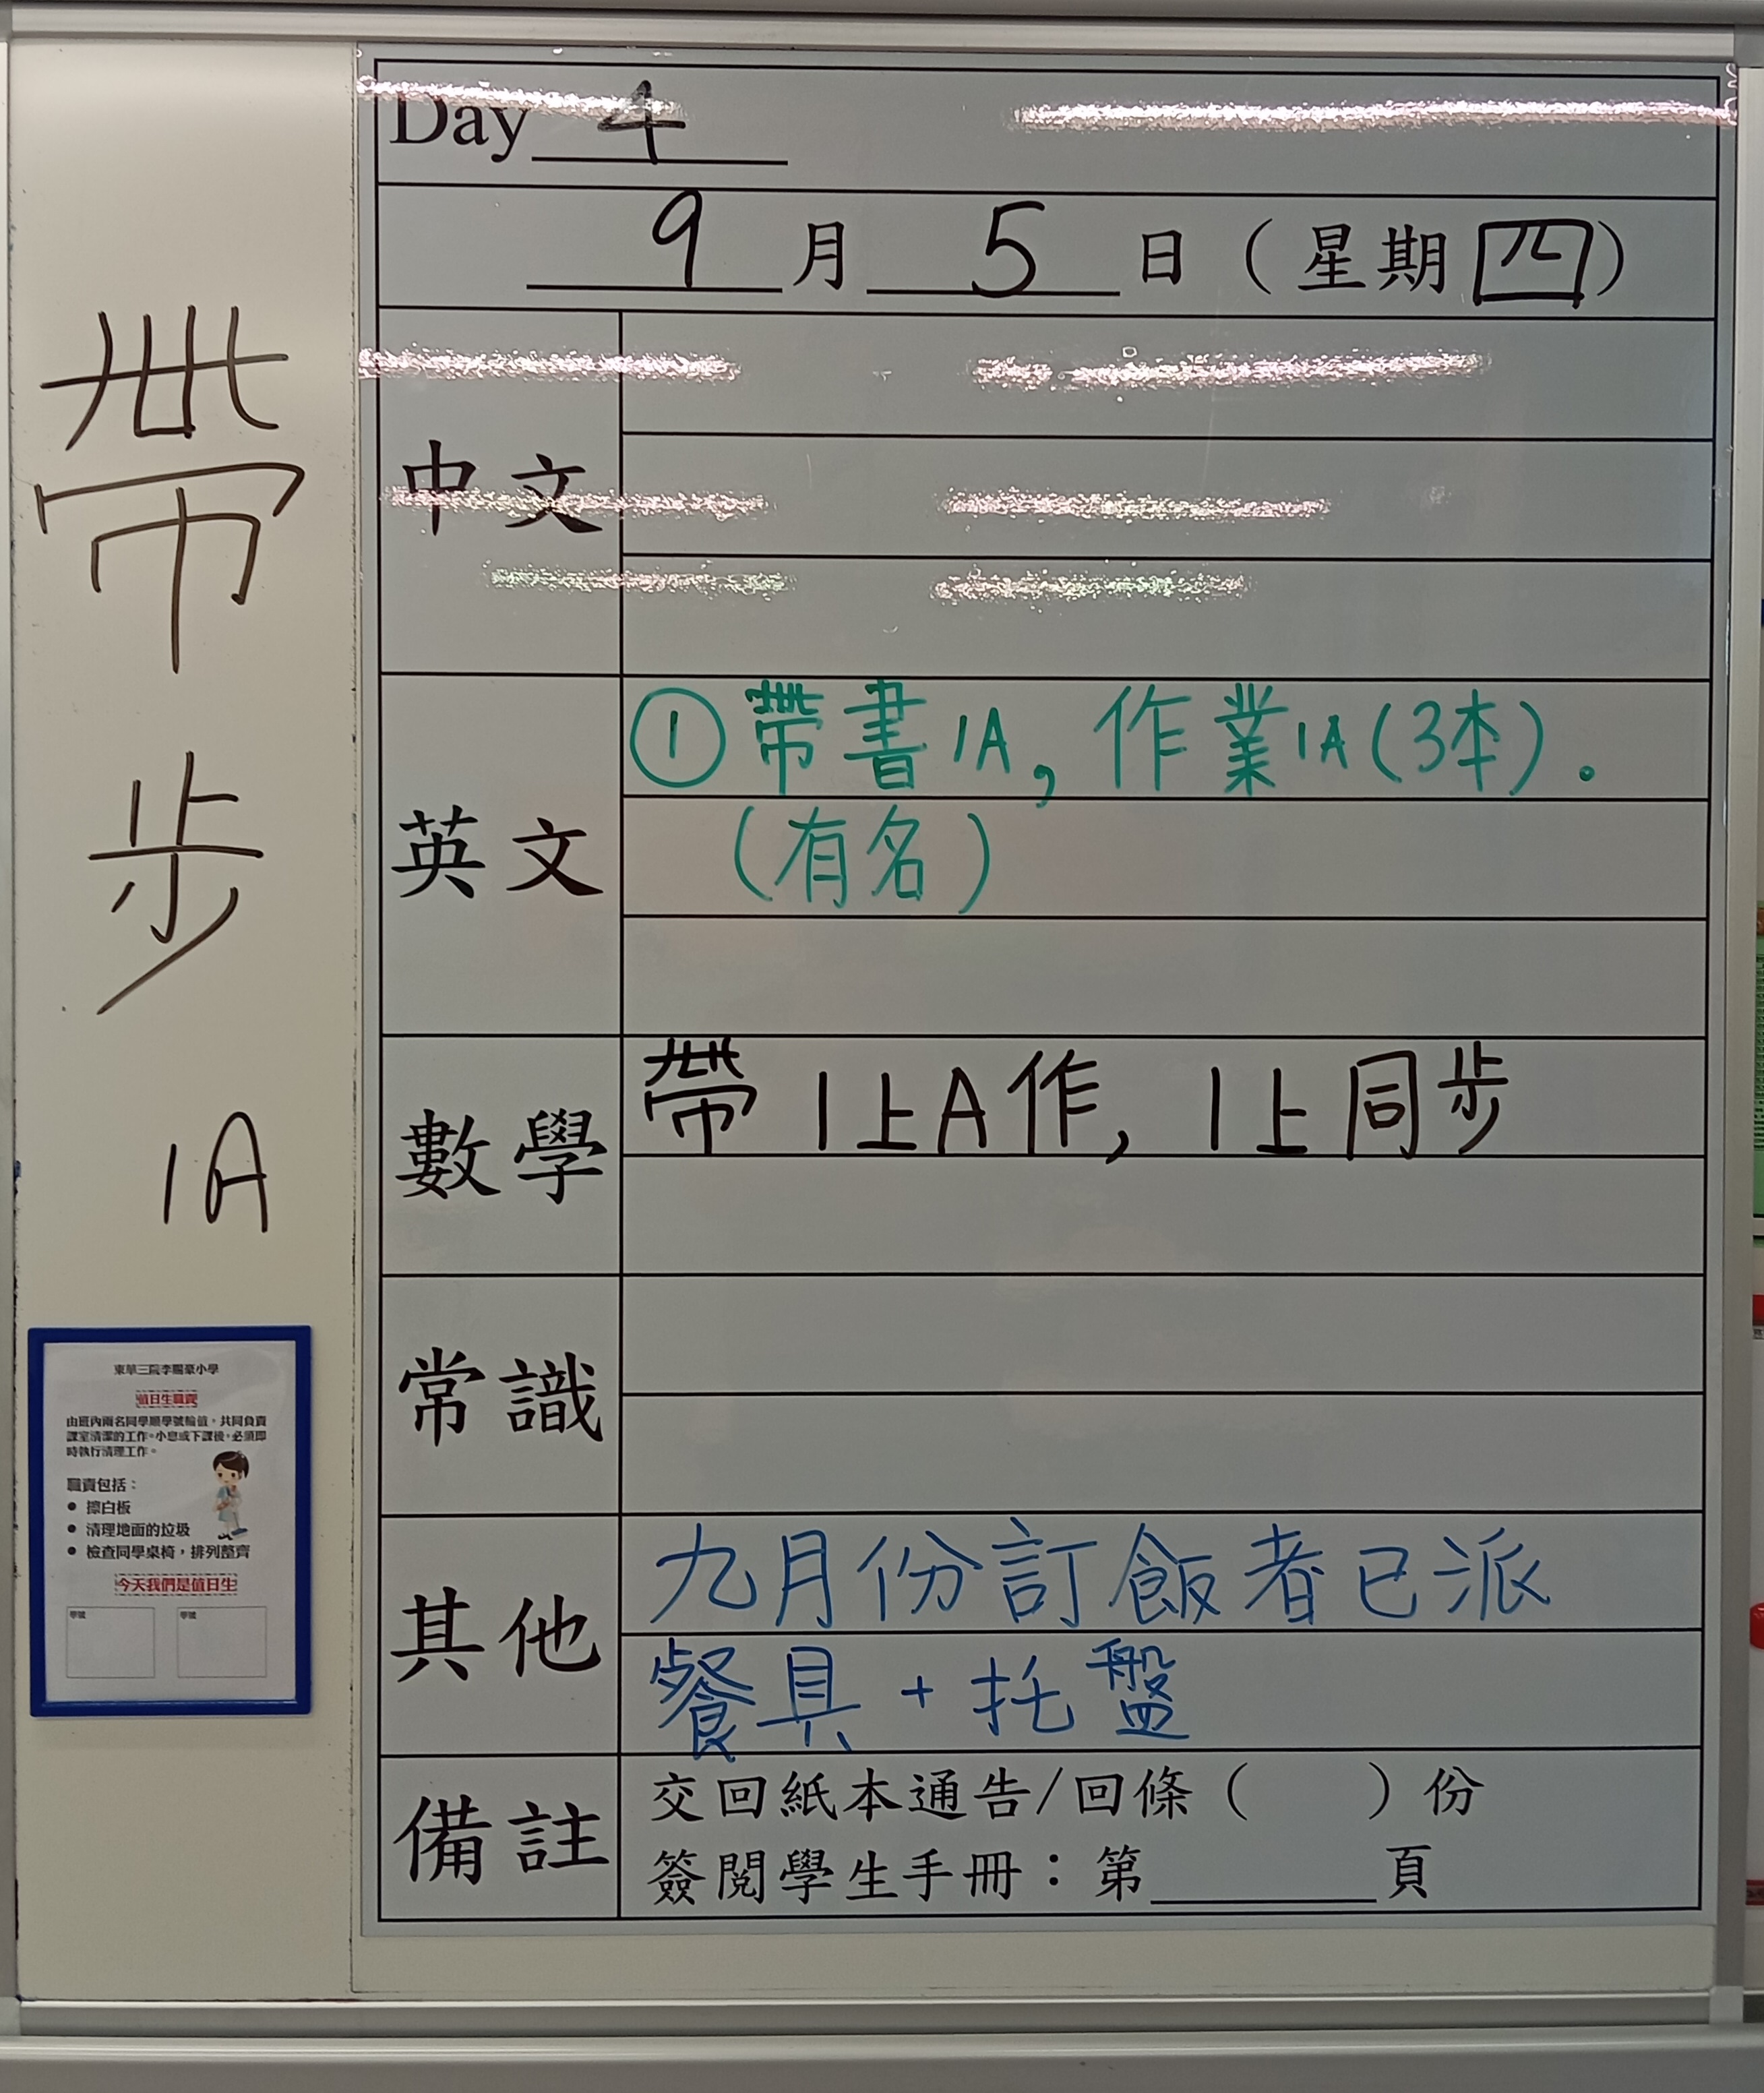 帶
步
1A
Day 4
9月5日（星期四）
中文
英文
①帶書1A, 作業1A(3本).
(有名)
數學
帶 1上A作, 1上同步
常識
其他
九月份訂飯者已派
餐具 + 托盤
備註
交回紙本通告/回條（ ）份
簽閱學生手冊：第______頁
東華三院李賜豪小學
值日生職責
由班內兩名同學順學號輪值，共同負責
課室清潔的工作。小息或下課後，必須即
時執行清理工作。
職責包括：
● 擦白板
● 清理地面的垃圾
● 檢查同學桌椅，排列整齊
今天我們是值日生
學號 學號